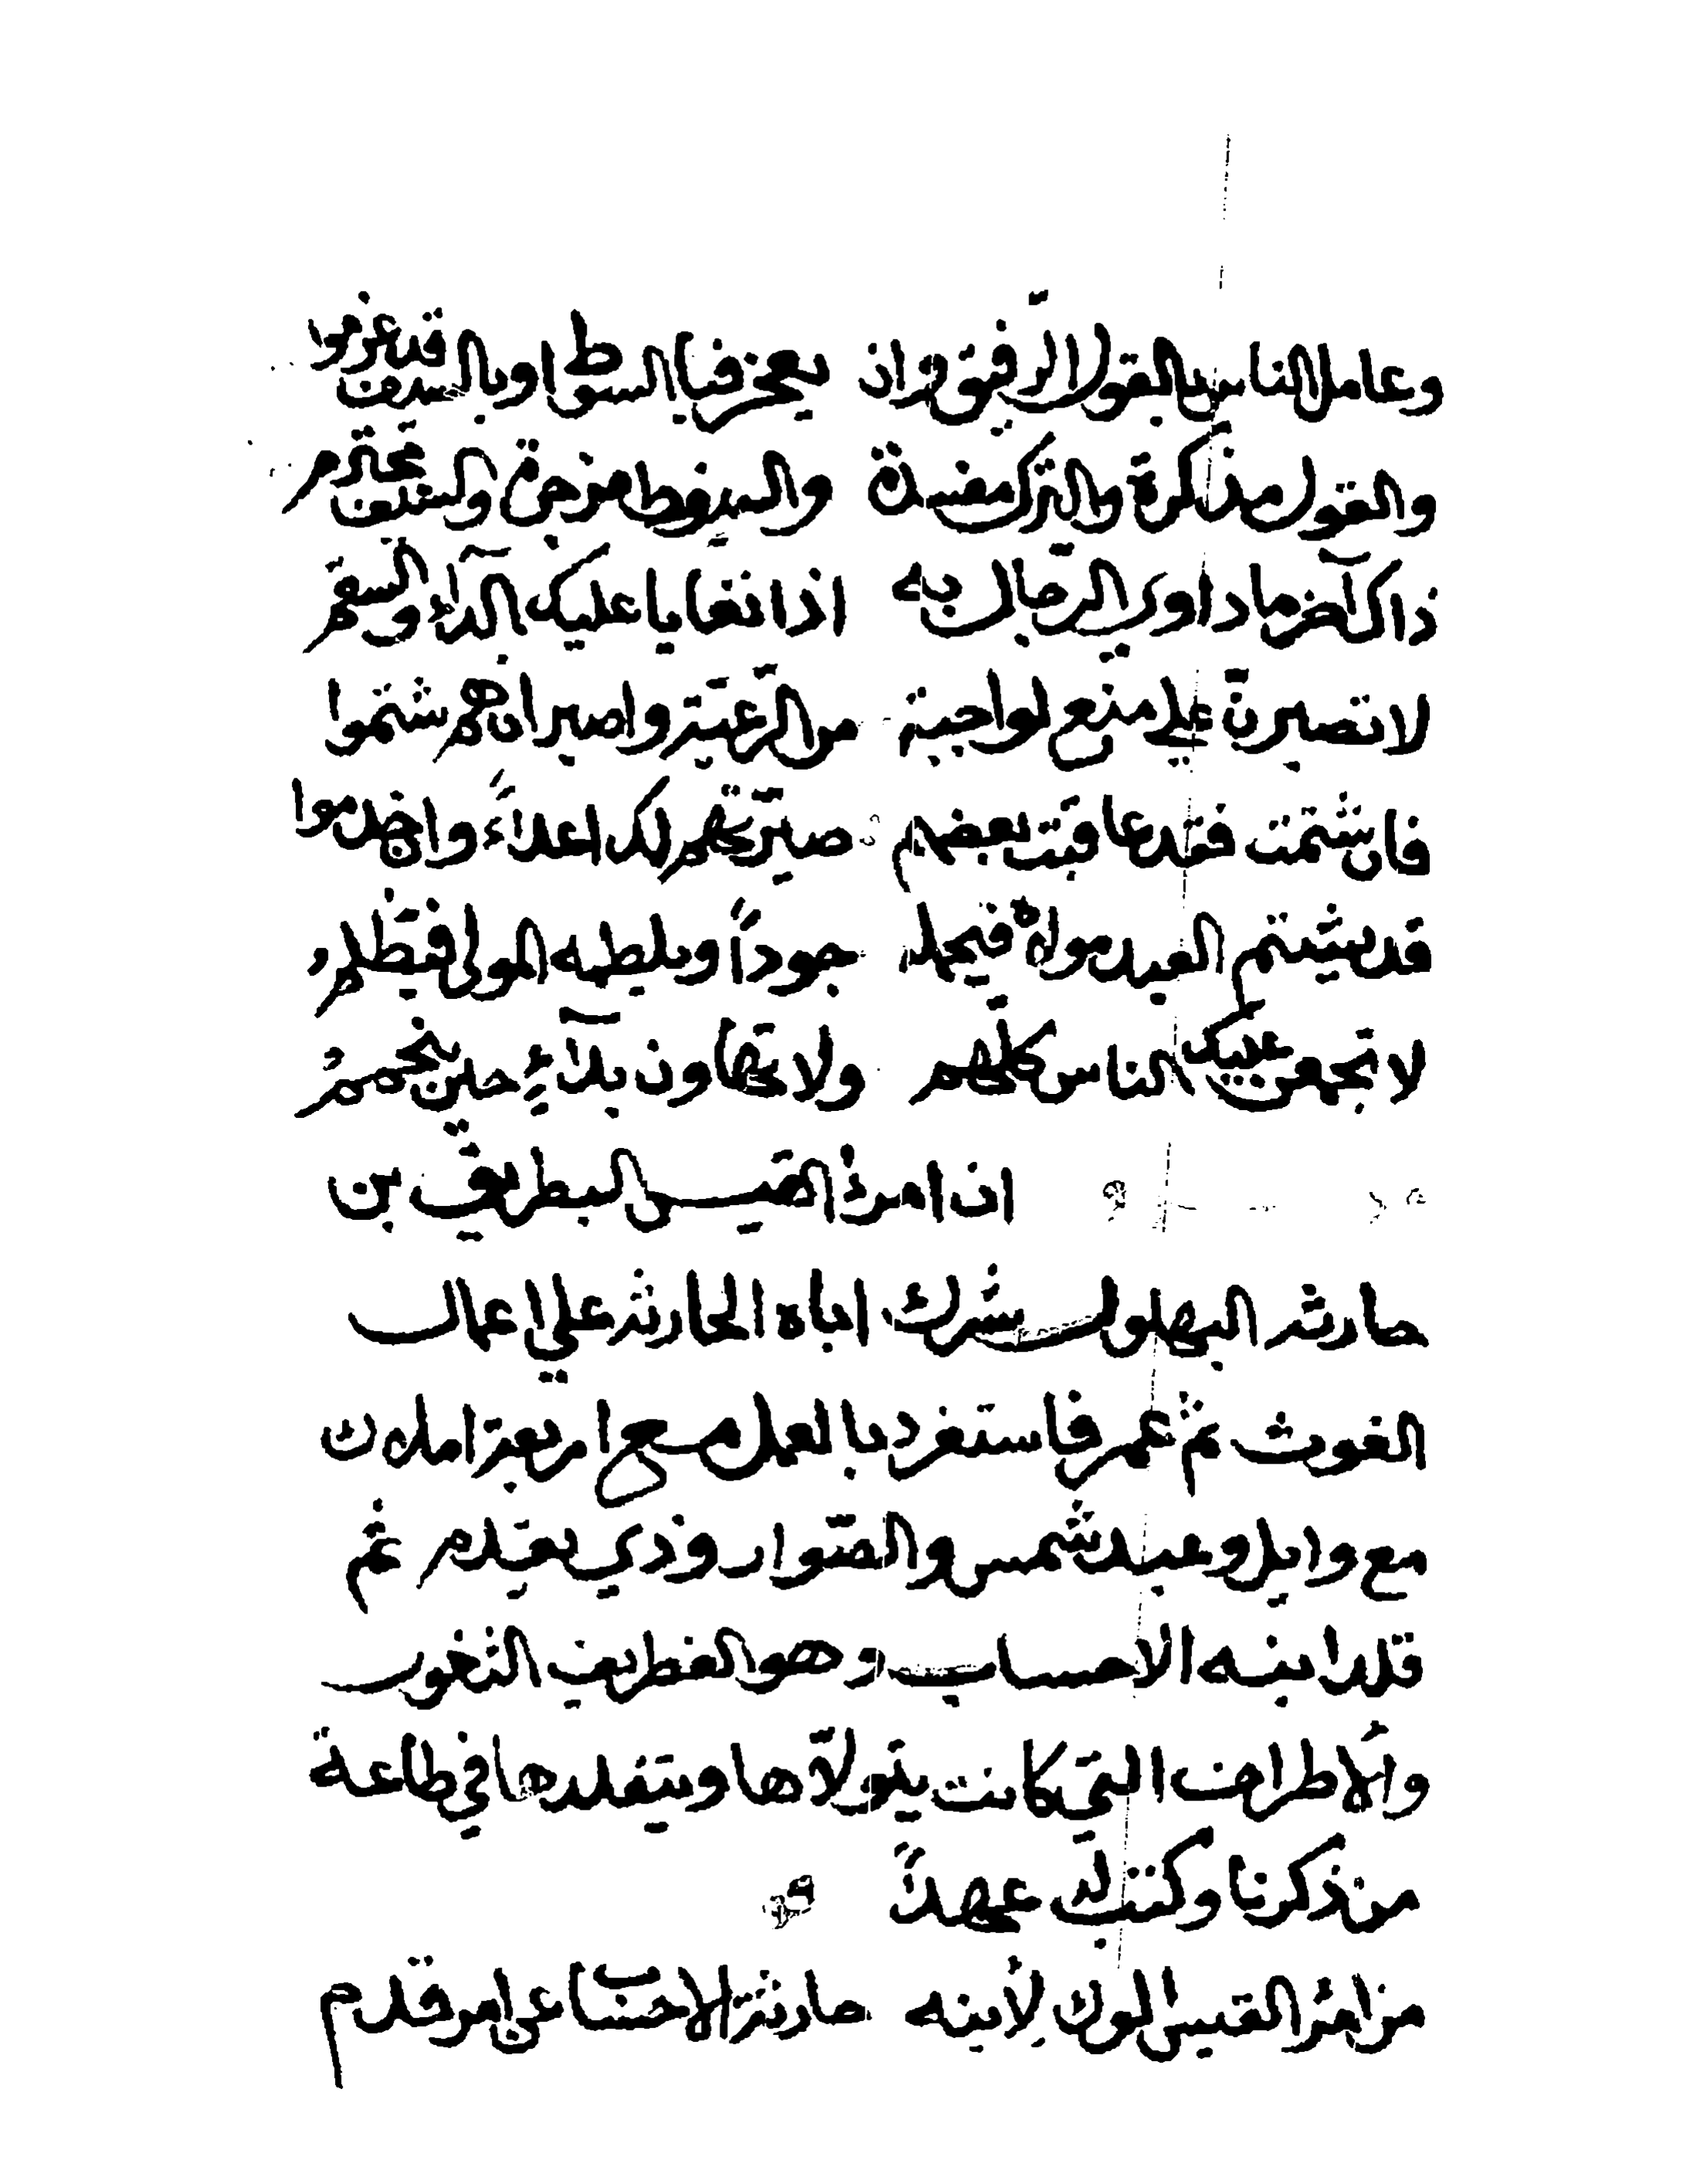 وعامل الناس بالقول الرّفيق وان يعجز فبالسوط او بالسيف قد عزموا
والقول مذكرة والترك مفسدة والسوط مزجرة والسيف مخترم
ذاك آخر ما داوى الرجال به اذا تعايا عليك الدآء والسقم
لا تصبرنّ علي منع لواجبة من الرّعيّة واصبر ان هم شتموا
فان شتمت فقد عاقبت بعضهم صيّرتهم لك اعداءً وان خدموا
قد يشتم العبد مولاه فيحمله جوداً ويلطمه المولى فيظلم
لا تجمعن عليك الناس كلّهم ولا تهاون بدآءٍ حين ينجم
ان امرؤ القيس البطريق بن
حارثة البهلول شرك اباه الحارث علي اعمال
الغوث ثم عمر فاستفرد بالعمل مع اربعة املاك
مع وايل وعبد شمس والصّوار وذي يقدم ثم
قلد ابنه الاحساب وهو الغطريف الثغور
والأطراف التي كانت يتولّاها ويتقلدها في طاعة
من ذكرنا وكتب له عهداً
من امرؤ القيس الوك لأبنه حارثة الاحساب عن امر قدم